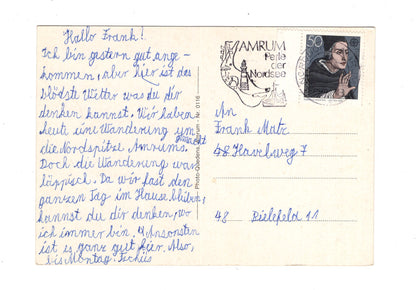 Hallo Frank!
Ich bin gestern gut ange-
kommen, aber hier ist das
blödste Wetter was du dir
denken kannst. Wir haben
heute eine Wanderung um
die Nordspitze Amrums gemacht.
Doch die Wanderung war
läppisch. Da wir fast den
ganzen Tag im Hause blieben,
kannst du dir denken, wo
ich immer bin. Ansonsten
ist es ganz gut hier. Also,
bis Montag. Tschüs
Photo-Quedens, Amrum · Nr. 0116
AMRUM
Perle
der
Nordsee
50
An
Frank Matz
48 Havelweg 7
48 Bielefeld 11